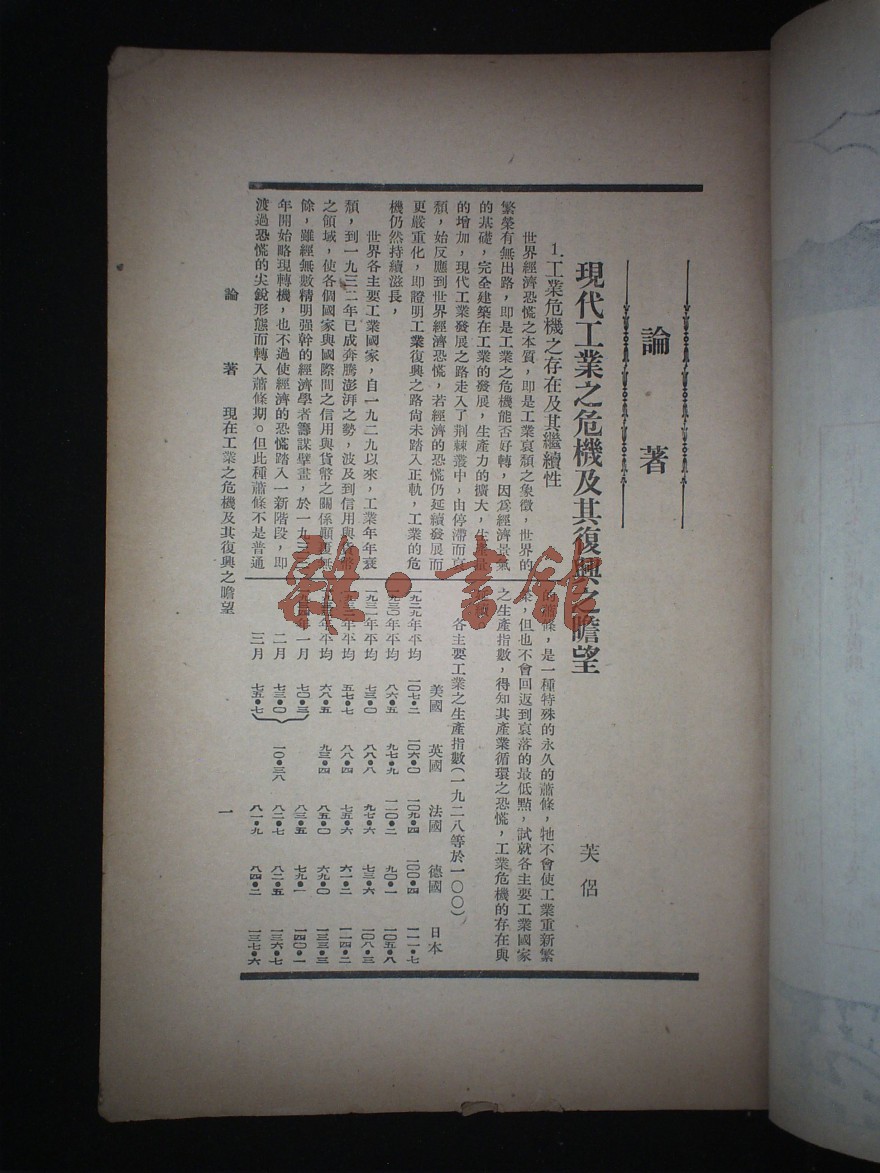 論著
現代工業之危機及其復興之瞻望
芙侶
1.工業危機之存在及其繼續性
世界經濟恐慌之本質，即是工業衰頹之象徵，世界的
繁榮有無出路，即是工業之危機能否好轉，因爲經濟景氣
的基礎，完全建築在工業的發展，生產力的擴大，生產
的增加，現代工業發展之路走入了荆棘叢中，由停滯而衰
頹，始反應到世界經濟恐慌，若經濟的恐慌仍延續發展而
更嚴重化，即證明工業復興之路尙未踏入正軌，工業的危
機仍然持續滋長，
世界各主要工業國家，自一九二九以來，工業年年衰
頹，到一九三二年已成奔騰澎湃之勢，波及到信用與貨幣
之領域，使各個國家與國際間之信用與貨幣之關係顚覆無
餘，雖經無數精明强幹的經濟學者籌謀擘畫，於一九三三
年開始略現轉機，也不過使經濟的恐慌踏入一新階段，即
渡過恐慌的尖銳形態而轉入蕭條期。但此種蕭條不是普通
蕭條，是一種特殊的永久的蕭條，牠不會使工業重新繁
榮，但也不會回返到衰落的最低點，試就各主要工業國家
之生產指數，得知其產業循環之恐慌，工業危機的存在與
各主要工業之生產指數(一九二八等於一〇〇)
美國 英國 法國 德國 日本
一九二九年平均 一〇七•二 一〇六•〇 一〇九•四 一〇〇•四 一一一•七
一九三〇年平均 八六•五 九七•九 一一〇•二 九〇•一 一〇五•八
一九三一年平均 七三•〇 八八•八 九七•六 七三•六 一〇八•三
年平均 五七•七 八八•四 七五•六 六一•二 一一四•二
年平均 六八•五 九三•四 八五•〇 六九•〇 一三三•三
年一月 七〇•三 八三•五 七九•一 一四〇•一
二月 七三•〇 一〇•三八 八二•七 八二•五 一三六•七
三月 七五•七 八一•九 八四•二 一三七•六
論著 現在工業之危機及其復興之瞻望
一
雜•書館